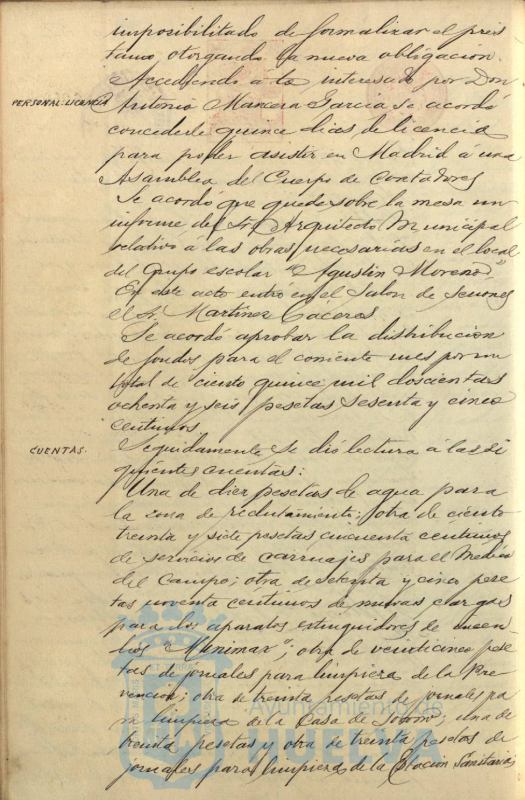 imposibilitado de formalizar el prés
tamo otorgando la nueva obligacion.
Accediendo á lo interesado por Don
PERSONAL-LICENCIA
Antonio Mancera Garcia se acordó
concederle quince dias de licencia
para poder asistir en Madrid á una
Asamblea del Cuerpo de Contadores
Se acordó que quede sobre la mesa un
informe del Sr. Arquitecto Municipal
relativo á las obras necesarias en el local
del Grupo escolar "Agustin Moreno"
En este acto entró en el Salon de sesiones
el Sr. Martinez Cáceres.
Se acordó aprobar la distribucion
de fondos para el corriente mes por un
total de ciento quince mil doscientas
ochenta y seis pesetas sesenta y cinco
centimos.
CUENTAS.
Seguidamente se dió lectura á las si
guientes cuentas:
Una de diez pesetas de agua para
la zona de reclutamiento; otra de ciento
treinta y siete pesetas cincuenta centimos
de servicios de carruajes para el Medico
del Campo; otra de setenta y cinco pese
tas noventa centimos de nuevas cargas
para los aparatos extinguidores de incen
dios "Minimax"; otra de veinticinco pese
tas de jornales para limpieza de la Pre
vencion; otra de treinta pesetas de jornales pa
ra limpieza de la Casa de Socorro; una de
treinta pesetas y otra de treinta pesetas de
jornales para limpieza de la Estacion Sanitaria;
Ayuntamiento de
HUELVA